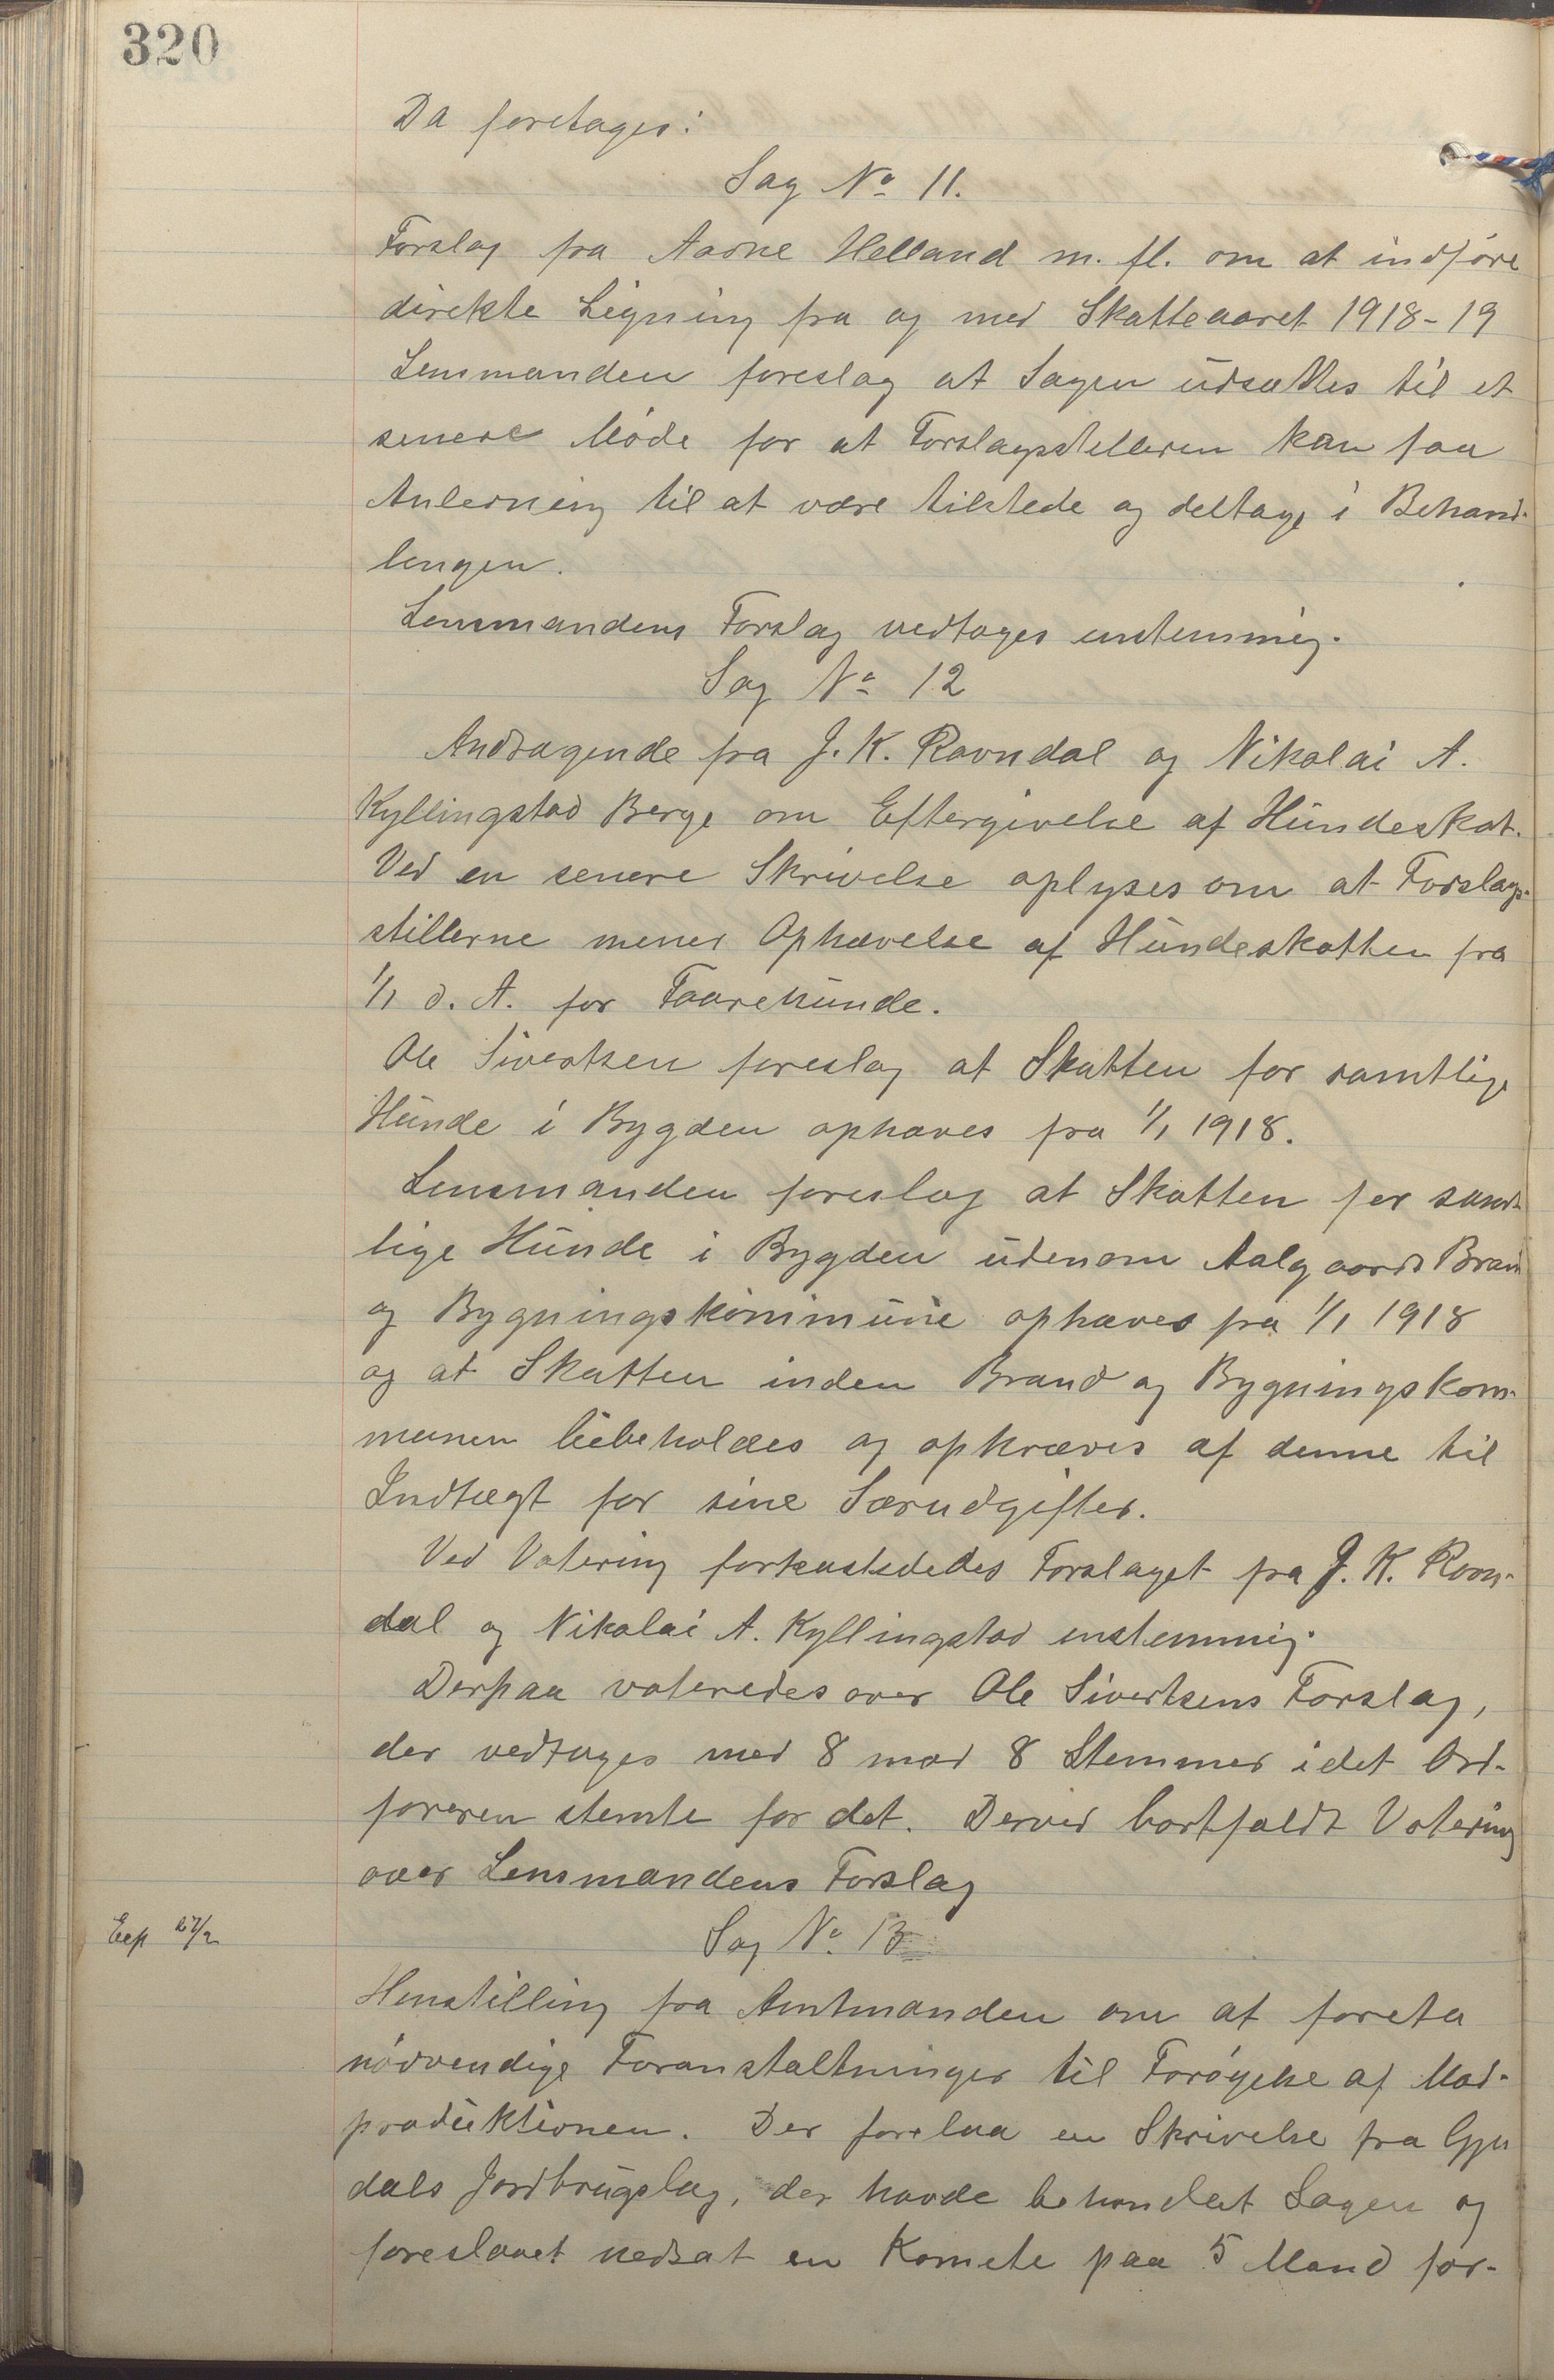 320
Da foretages:
Sag No 11.
Forslag fra Aadne Helland m. fl. om at indføre
direkte Ligning fra og med Skatteaaret 1918-19
Lensmanden foreslog at Sagen udsættes til et
senere Møde for at Forslagsstilleren kan faa
Anledning til at være tilstede og deltage i Behand-
lingen.
Lensmandens Forslag vedtoges enstemmig.
Sag No 12
Andragende fra J. K. Ravndal og Nikolai A.
Kyllingstad Berge om Eftergivelse af Hundeskat.
Ved en senere Skrivelse oplyses om at Forslags-
stillerne mener Ophævelse af Hundeskatten fra
1/1 d. A. for Faarehunde.
Ole Sivertsen foreslog at Skatten for samtlige
Hunde i Bygden ophæves fra 1/1 1918.
Lensmanden foreslog at Skatten for samt-
lige Hunde i Bygden udenom Aalgaards Brand
og Bygningskommune ophæves fra 1/1 1918
og at Skatten inden Brand og Bygningskom-
munen bibeholdes og opkræves af denne til
Indtægt for sine Særudgifter.
Ved Votering forkastededes Forslaget fra J. K. Ravn-
dal og Nikolai A. Kyllingstad enstemmig.
Derpaa voteredes over Ole Sivertsens Forslag,
der vedtoges med 8 mod 8 Stemmer idet Ord-
føreren stemte for det. Derved bortfaldt Votering
over Lensmandens Forslag
Exp 27/2
Sag No. 13
Henstilling fra Amtmanden om at foreta
nødvendige Foranstaltninger til Forøgelse af Mad-
produktionen. Der forelaa en Skrivelse fra Gjes
dals Jordbrugslag, der havde behandlet Sagen og
foreslaaet nedsat en Komite paa 5 Mand for-